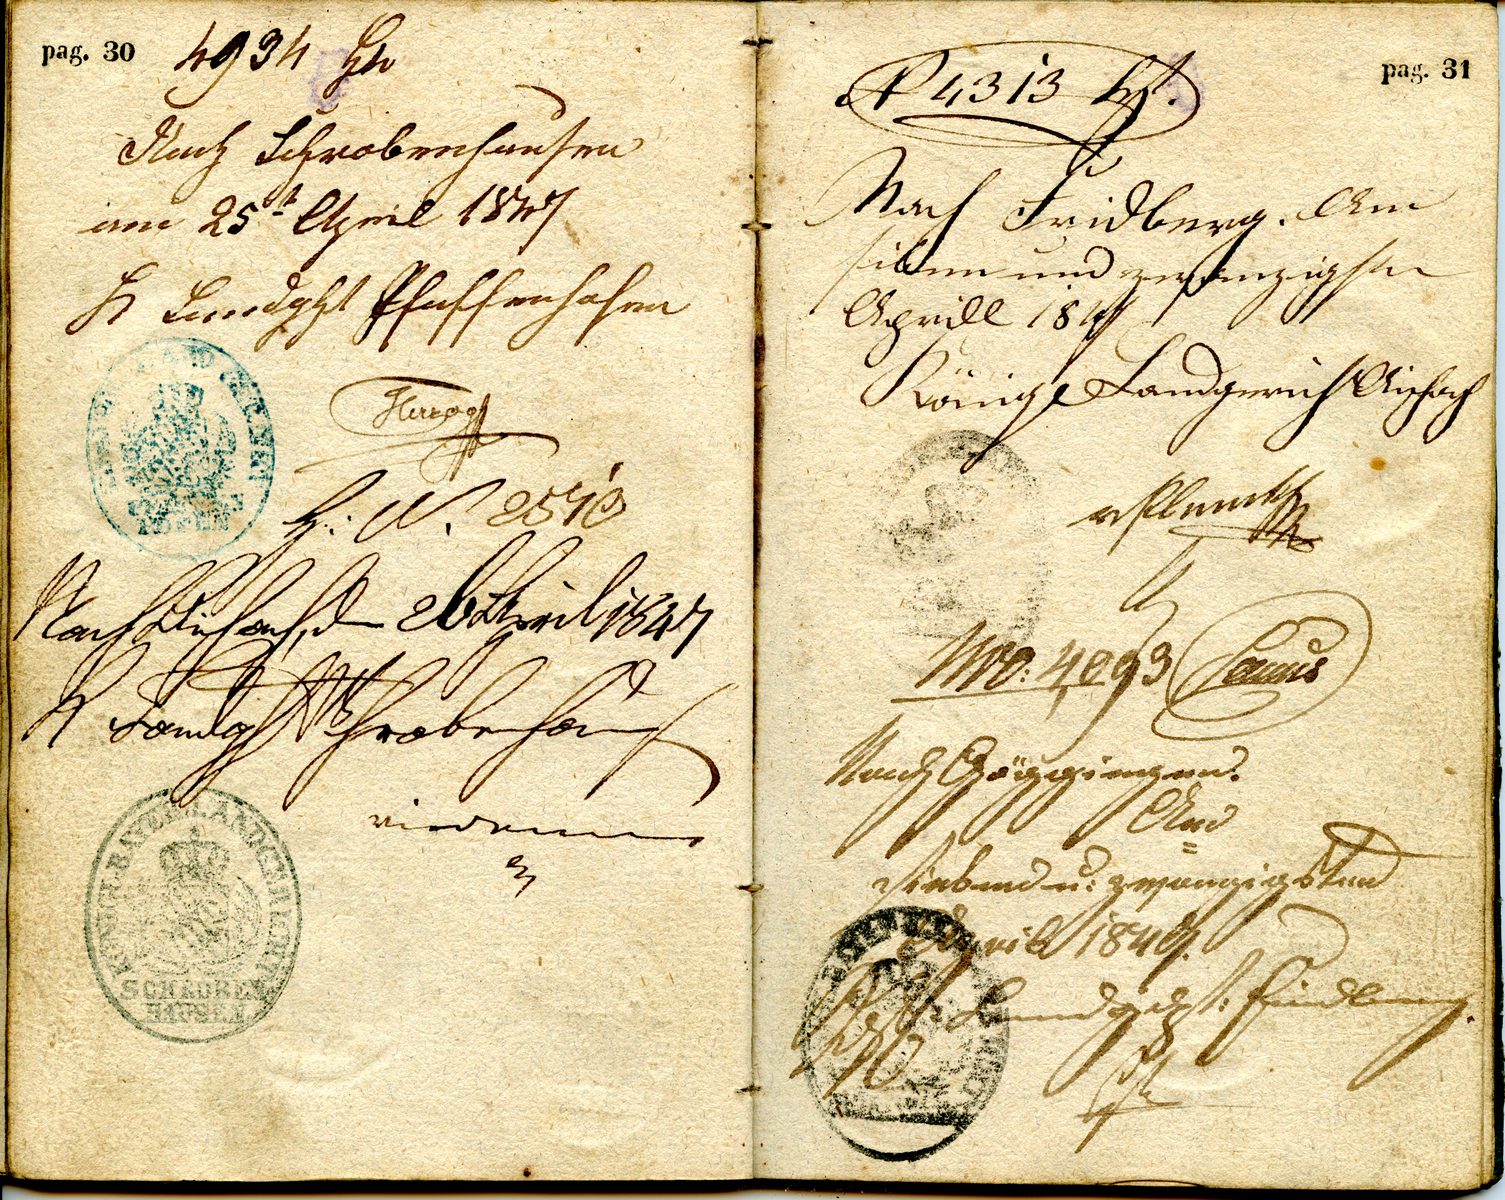 pag. 30
4934
Nach Schrobenhausen
am 25t April 1847
K Landght Pfaffenhofen
Herzog
H: N. 2570
Nach Aichach, d 26 April 1847
K Landg Schrobenhausen
KÖNIGL. BAYER. LANDGERICHT
SCHROBEN
HAUSEN
pag. 31
4313
Nach Fridberg. Am
siben und zwanzigsten
Aprill 1847
Königl Landgericht Aichach
Nro: 4093
Nach Göggingen.
Am
siebend u: zwanzigsten
April 1847.
K. Landgcht: Friedberg.